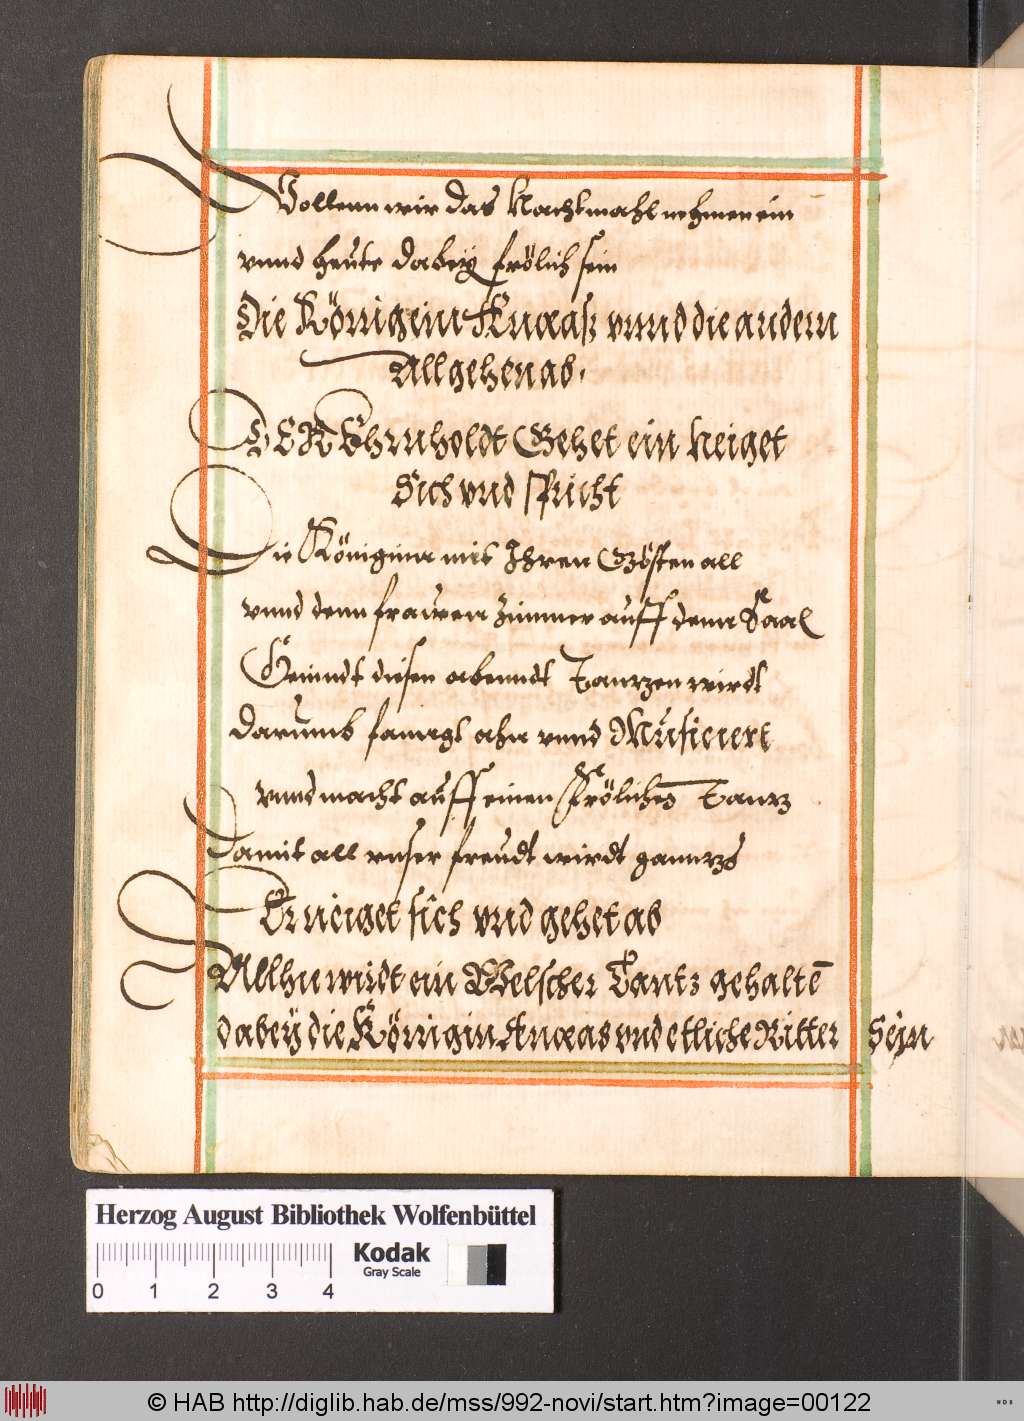 Wollenn wir das Nachtmahl nehmen ein
vnnd heute dabey frölich sein
Die Königein Anxaß vnnd die andern
All gehen ab.
DER Ehrnholdt Gehet ein neiget
Sich vnd spricht
Die Königinn mit Ihren Gösten all
vnnd denn frauwen Zimmer auff denn Saal
Heinndt diesen abenndt Tanntzen wirdt
darumb fanngt ahn vnnd Musiciert
vnnd macht auff einen Frölichē Tantz
damit all vnser freudt wirdt ganntz
Er neiget sich vnd gehet ab
Allhie wirdt ein Welscher Tantz gehaltē
dabeÿ die Königin Anxas vnd etliche Ritter Sein
Herzog August Bibliothek Wolfenbüttel
Kodak
Gray Scale
0 1 2 3 4
© HAB http://diglib.hab.de/mss/992-novi/start.htm?image=00122